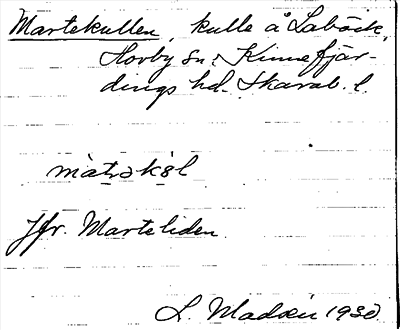 Martekullen, kulle å Labäck,
Hovby sn. Kinnefjär-
dings hd. Skarab. l.
màtrək8l
Jfr. Marteliden.
L. Modéer 1930